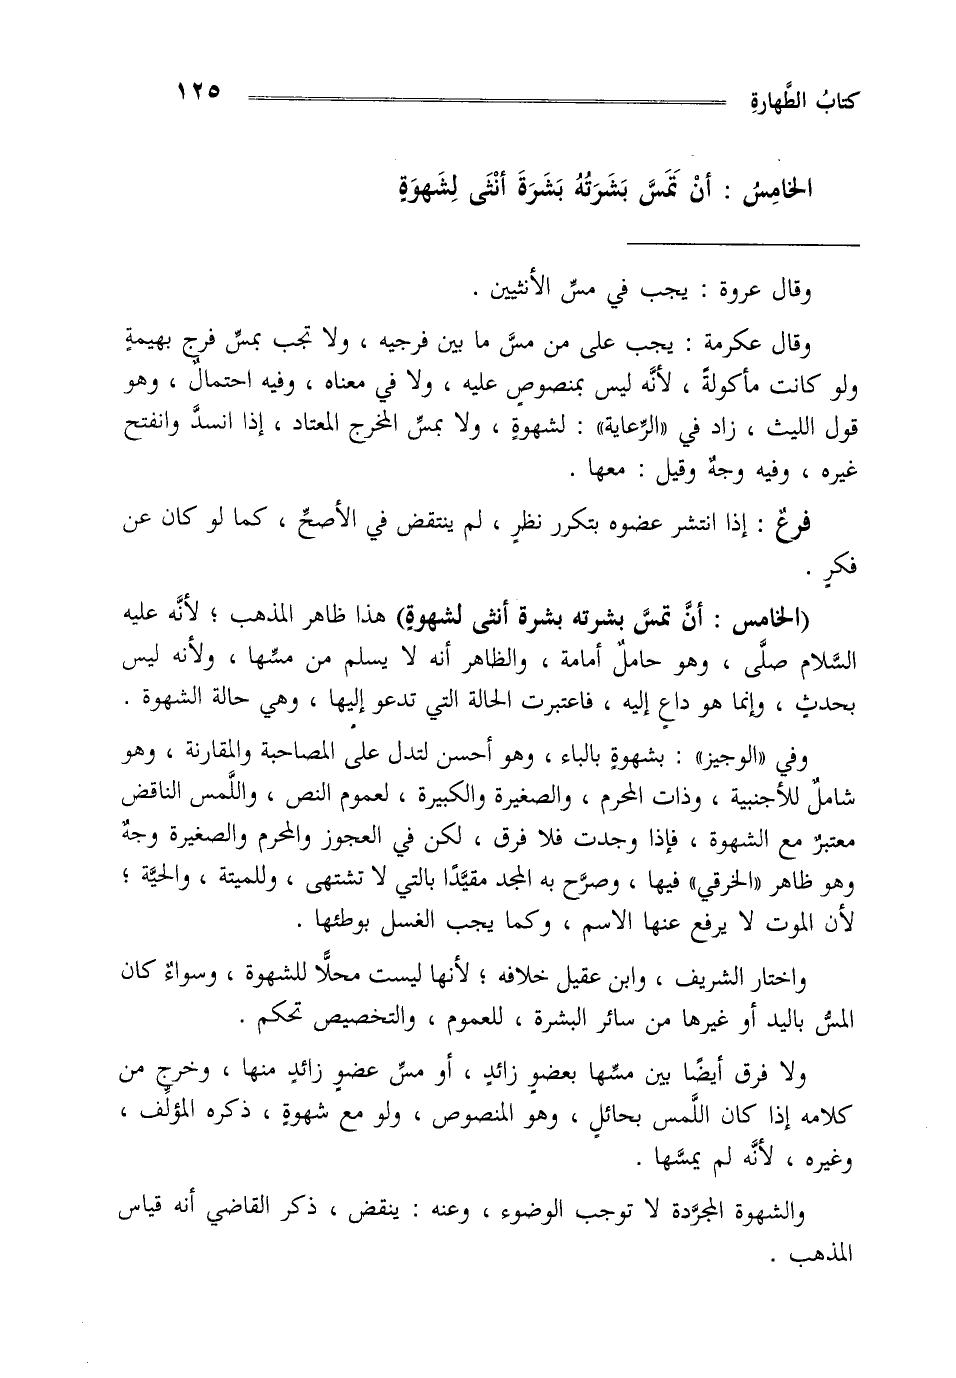 كتابُ الطَّهارةِ ١٢٥
الخامِسُ : أنْ تَمَسَّ بَشَرَتُهُ بَشَرَةَ أنْثَى لِشَهوَةٍ
وقال عروة : يجب في مسِّ الأنثيين .
وقال عكرمة : يجب على من مسَّ ما بين فرجيه ، ولا تجب بمسِّ فرج بهيمةٍ
ولو كانت مأكولةً ، لأنَّه ليس بمنصوصٍ عليه ، ولا في معناه ، وفيه احتمالٌ ، وهو
قول الليث ، زاد في «الرِّعاية» : لشهوةٍ ، ولا بمسِّ المخرج المعتاد ، إذا انسدَّ وانفتح
غيره ، وفيه وجهٌ وقيل : معها .
فرعٌ : إذا انتشر عضوه بتكرر نظرٍ ، لم ينتقض في الأصحِّ ، كما لو كان عن
فكرٍ .
(الخامس : أنَّ تمسَّ بشرته بشرة أنثى لشهوةٍ) هذا ظاهر المذهب ؛ لأنَّه عليه
السَّلام صلَّى ، وهو حاملٌ أمامة ، والظاهر أنه لا يسلم من مسِّها ، ولأنه ليس
بحدثٍ ، وإنما هو داعٍ إليه ، فاعتبرت الحالة التي تدعو إليها ، وهي حالة الشهوة .
وفي «الوجيز» : بشهوةٍ بالباء ، وهو أحسن لتدل على المصاحبة والمقارنة ، وهو
شاملٌ للأجنبية ، وذات المحرم ، والصغيرة والكبيرة ، لعموم النص ، واللَّمس الناقض
معتبرٌ مع الشهوة ، فإذا وجدت فلا فرق ، لكن في العجوز والمحرم والصغيرة وجهٌ
وهو ظاهر «الخرقي» فيها ، وصرَّح به المجد مقيَّدًا بالتي لا تشتهى ، وللميتة ، والحيَّة ؛
لأن الموت لا يرفع عنها الاسم ، وكما يجب الغسل بوطئها .
واختار الشريف ، وابن عقيل خلافه ؛ لأنها ليست محلًّا للشهوة ، وسواءٌ كان
المسُّ باليد أو غيرها من سائر البشرة ، للعموم ، والتخصيص تحكم .
ولا فرق أيضًا بين مسِّها بعضوٍ زائدٍ ، أو مسِّ عضوٍ زائدٍ منها ، وخرج من
كلامه إذا كان اللَّمس بحائلٍ ، وهو المنصوص ، ولو مع شهوةٍ ، ذكره المؤلِّف ،
وغيره ، لأنَّه لم يمسَّها .
والشهوة المجرَّدة لا توجب الوضوء ، وعنه : ينقض ، ذكر القاضي أنه قياس
المذهب .